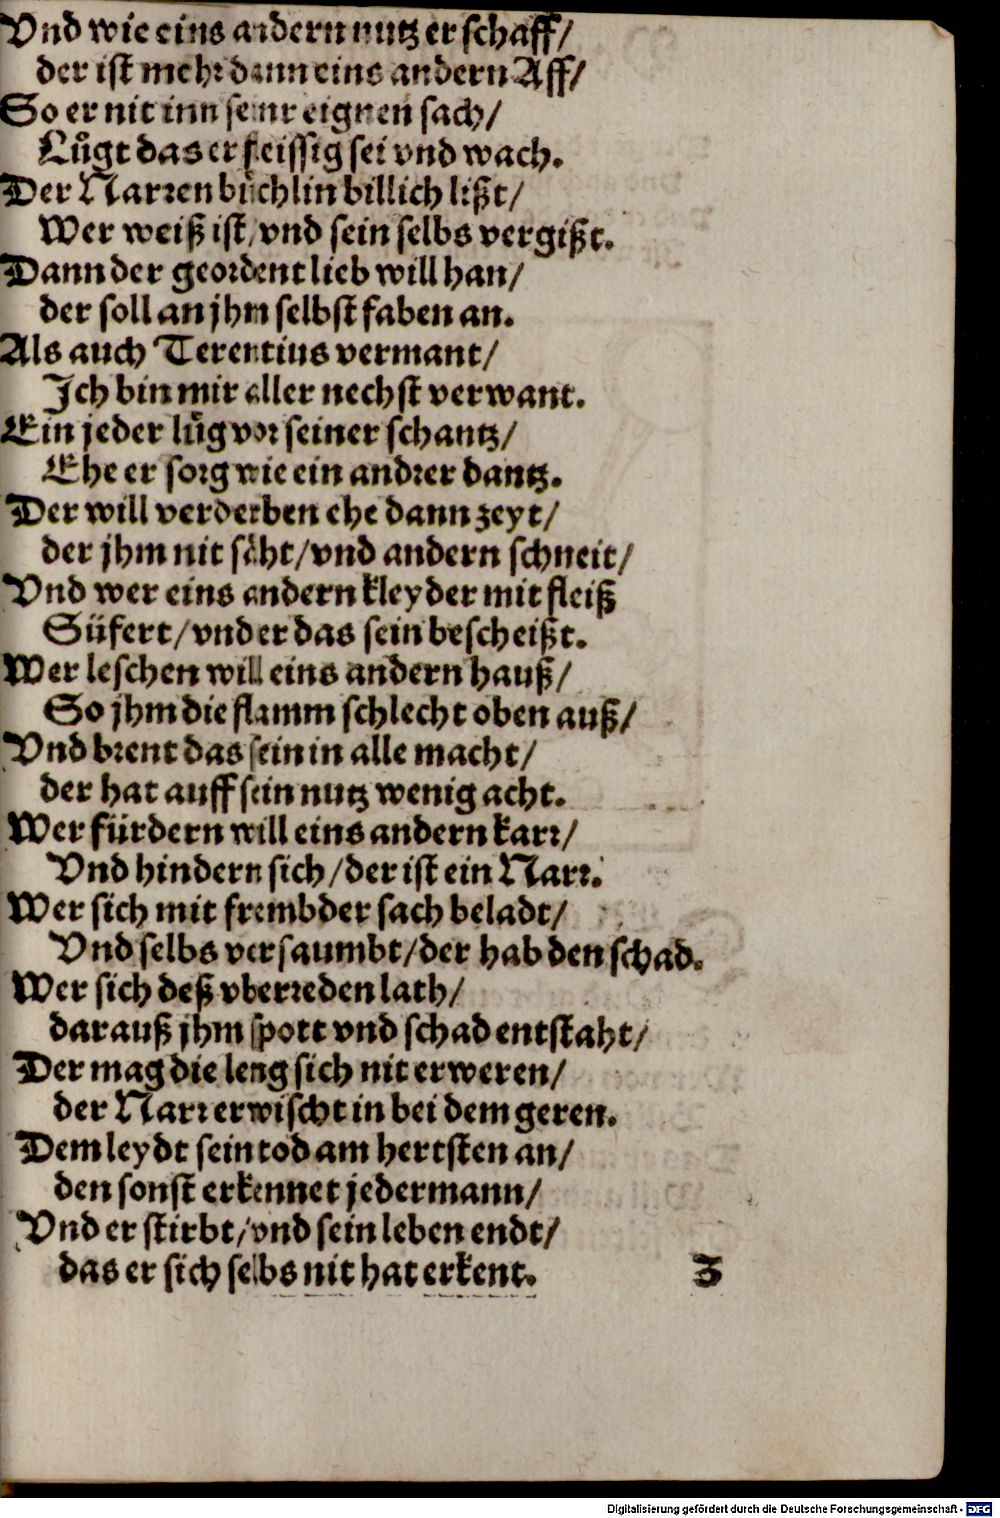 Vnd wie eins andern nutz er schaff/
der ist mehr dann eins andern Aff/
So er nit inn seinr eignen sach/
Lůgt das er fleissig sei vnd wach.
Der Narren bůchlin billich lißt/
Wer weiß ist/vnd sein selbs vergißt.
Dann der geordent lieb will han/
der soll an jhm selbst faben an.
Als auch Terentius vermant/
Ich bin mir aller nechst verwant.
Ein jeder lůg vor seiner schantz/
Ehe er sorg wie ein andrer dantz.
Der will verderben ehe dann zeyt/
der jhm nit säht/vnd andern schneit/
Vnd wer eins andern kleyder mit fleiß
Süfert/vnd er das sein bescheißt.
Wer leschen will eins andern hauß/
So jhm die flamm schlecht oben auß/
Vnd brent das sein in alle macht/
der hat auff sein nutz wenig acht.
Wer fürdern will eins andern karr/
Vnd hindern sich/der ist ein Narr.
Wer sich mit frembder sach beladt/
Vnd selbs versaumbt/der hab den schad.
Wer sich deß vberreden lath/
darauß jhm spott vnd schad entstaht/
Der mag die leng sich nit erweren/
der Narr erwischt in bei dem geren.
Dem leydt sein tod am hertsten an/
den sonst erkennet jedermann/
Vnd er stirbt/vnd sein leben endt/
das er sich selbs nit hat erkent. Z
Digitalisierung gefördert durch die Deutsche Forschungsgemeinschaft - DFG